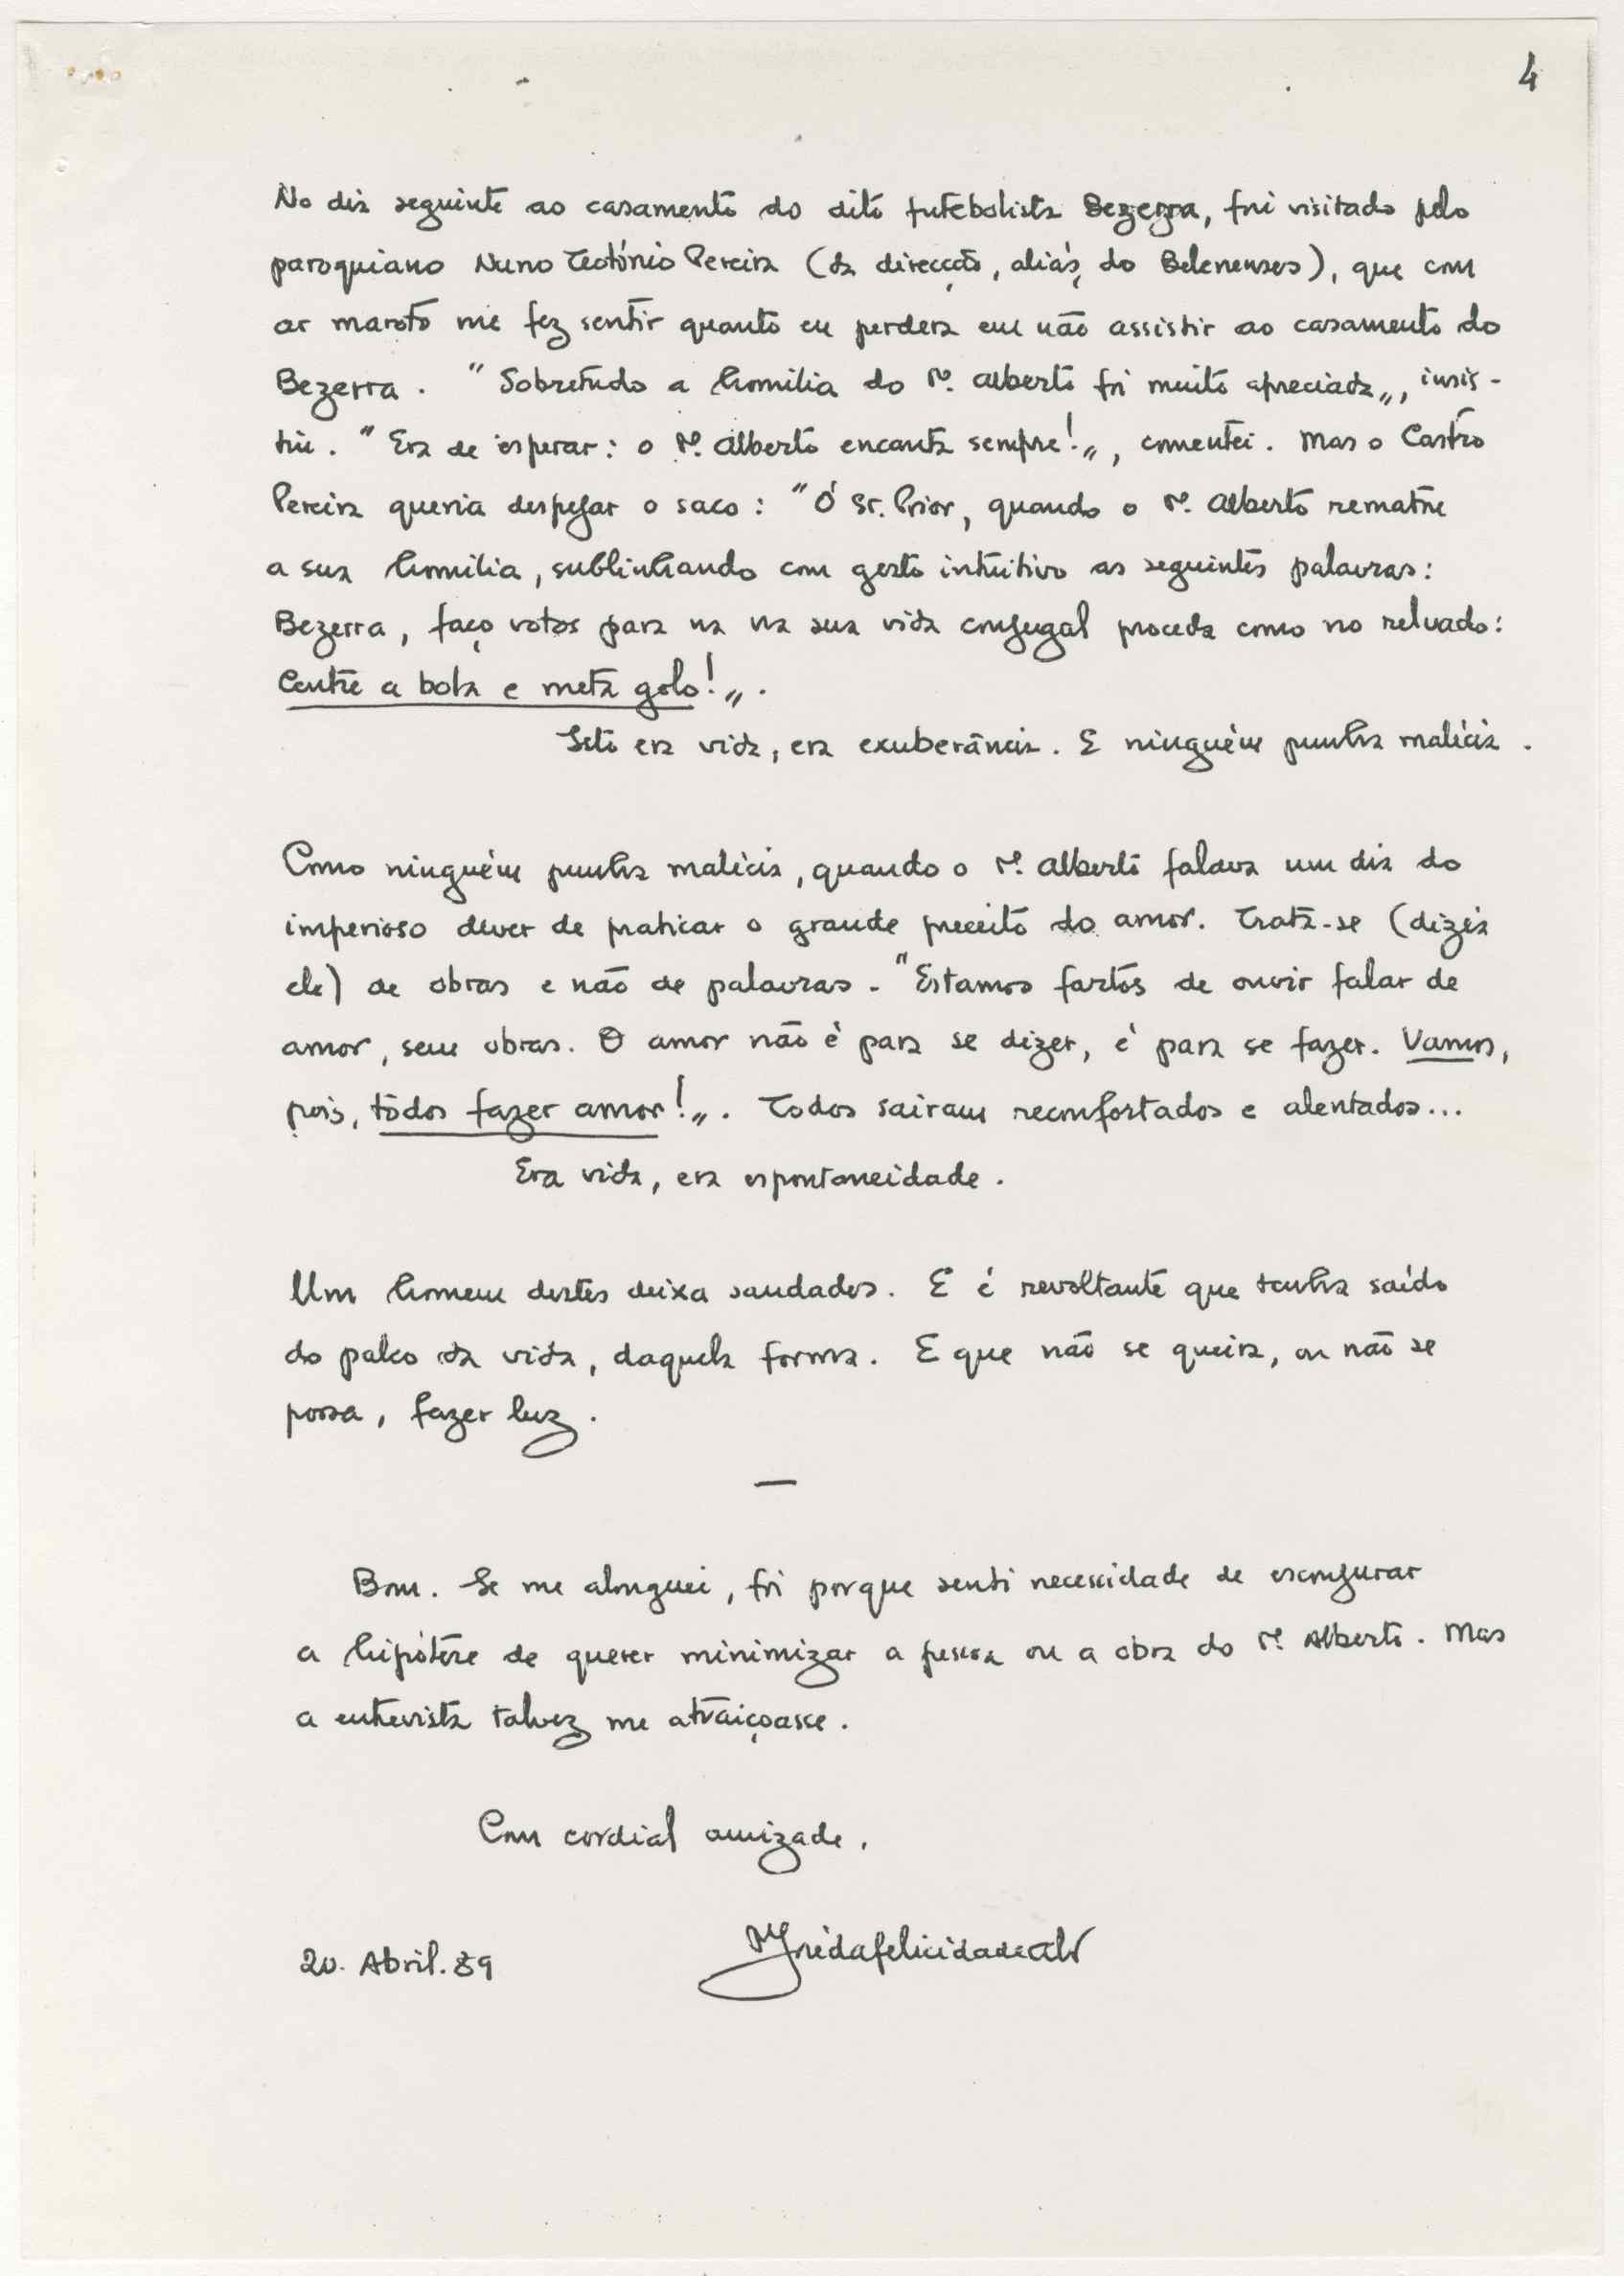 4
No dia seguinte ao casamento do dito futebolista Bezerra, fui visitado pelo
paroquiano Nuno Teotónio Pereira (da direcção, aliás, do Belenenses), que com
ar maroto me fez sentir quanto eu perdera em não assistir ao casamento do
Bezerra. "Sobretudo a homilia do Pe. Alberto foi muito apreciada", insis-
tiu. "Era de esperar: o Pe. Alberto encanta sempre!", comentei. Mas o Castro
Pereira queria despejar o saco: "Ó Sr. Prior, quando o Pe. Alberto rematou
a sua homilia, sublinhando com gesto intuitivo as seguintes palavras:
Bezerra, faço votos para na na sua vida conjugal proceda como no relvado:
Centre a bola e meta golo!".
Isto era vida, era exuberância. E ninguém punha malícia.
Como ninguém punha malícia, quando o Pe. Alberto falava um dia do
imperioso dever de praticar o grande preceito do amor. Trata-se (dizia
ele) de obras e não de palavras. "Estamos fartos de ouvir falar de
amor, sem obras. O amor não é para se dizer, é para se fazer. Vamos,
pois, todos fazer amor!". Todos sairam reconfortados e alentados...
Era vida, era espontaneidade.
Um homem destes deixa saudades. E é revoltante que tenha saído
do palco da vida, daquela forma. E que não se queira, ou não se
possa, fazer luz.
—
Bom. Se me alonguei, foi porque senti necessidade de esconjurar
a hipótese de querer minimizar a pessoa ou a obra do Pe. Alberto. Mas
a entrevista talvez me atraiçoasse.
Com cordial amizade,
20. Abril. 89
Josédafelicidadealv